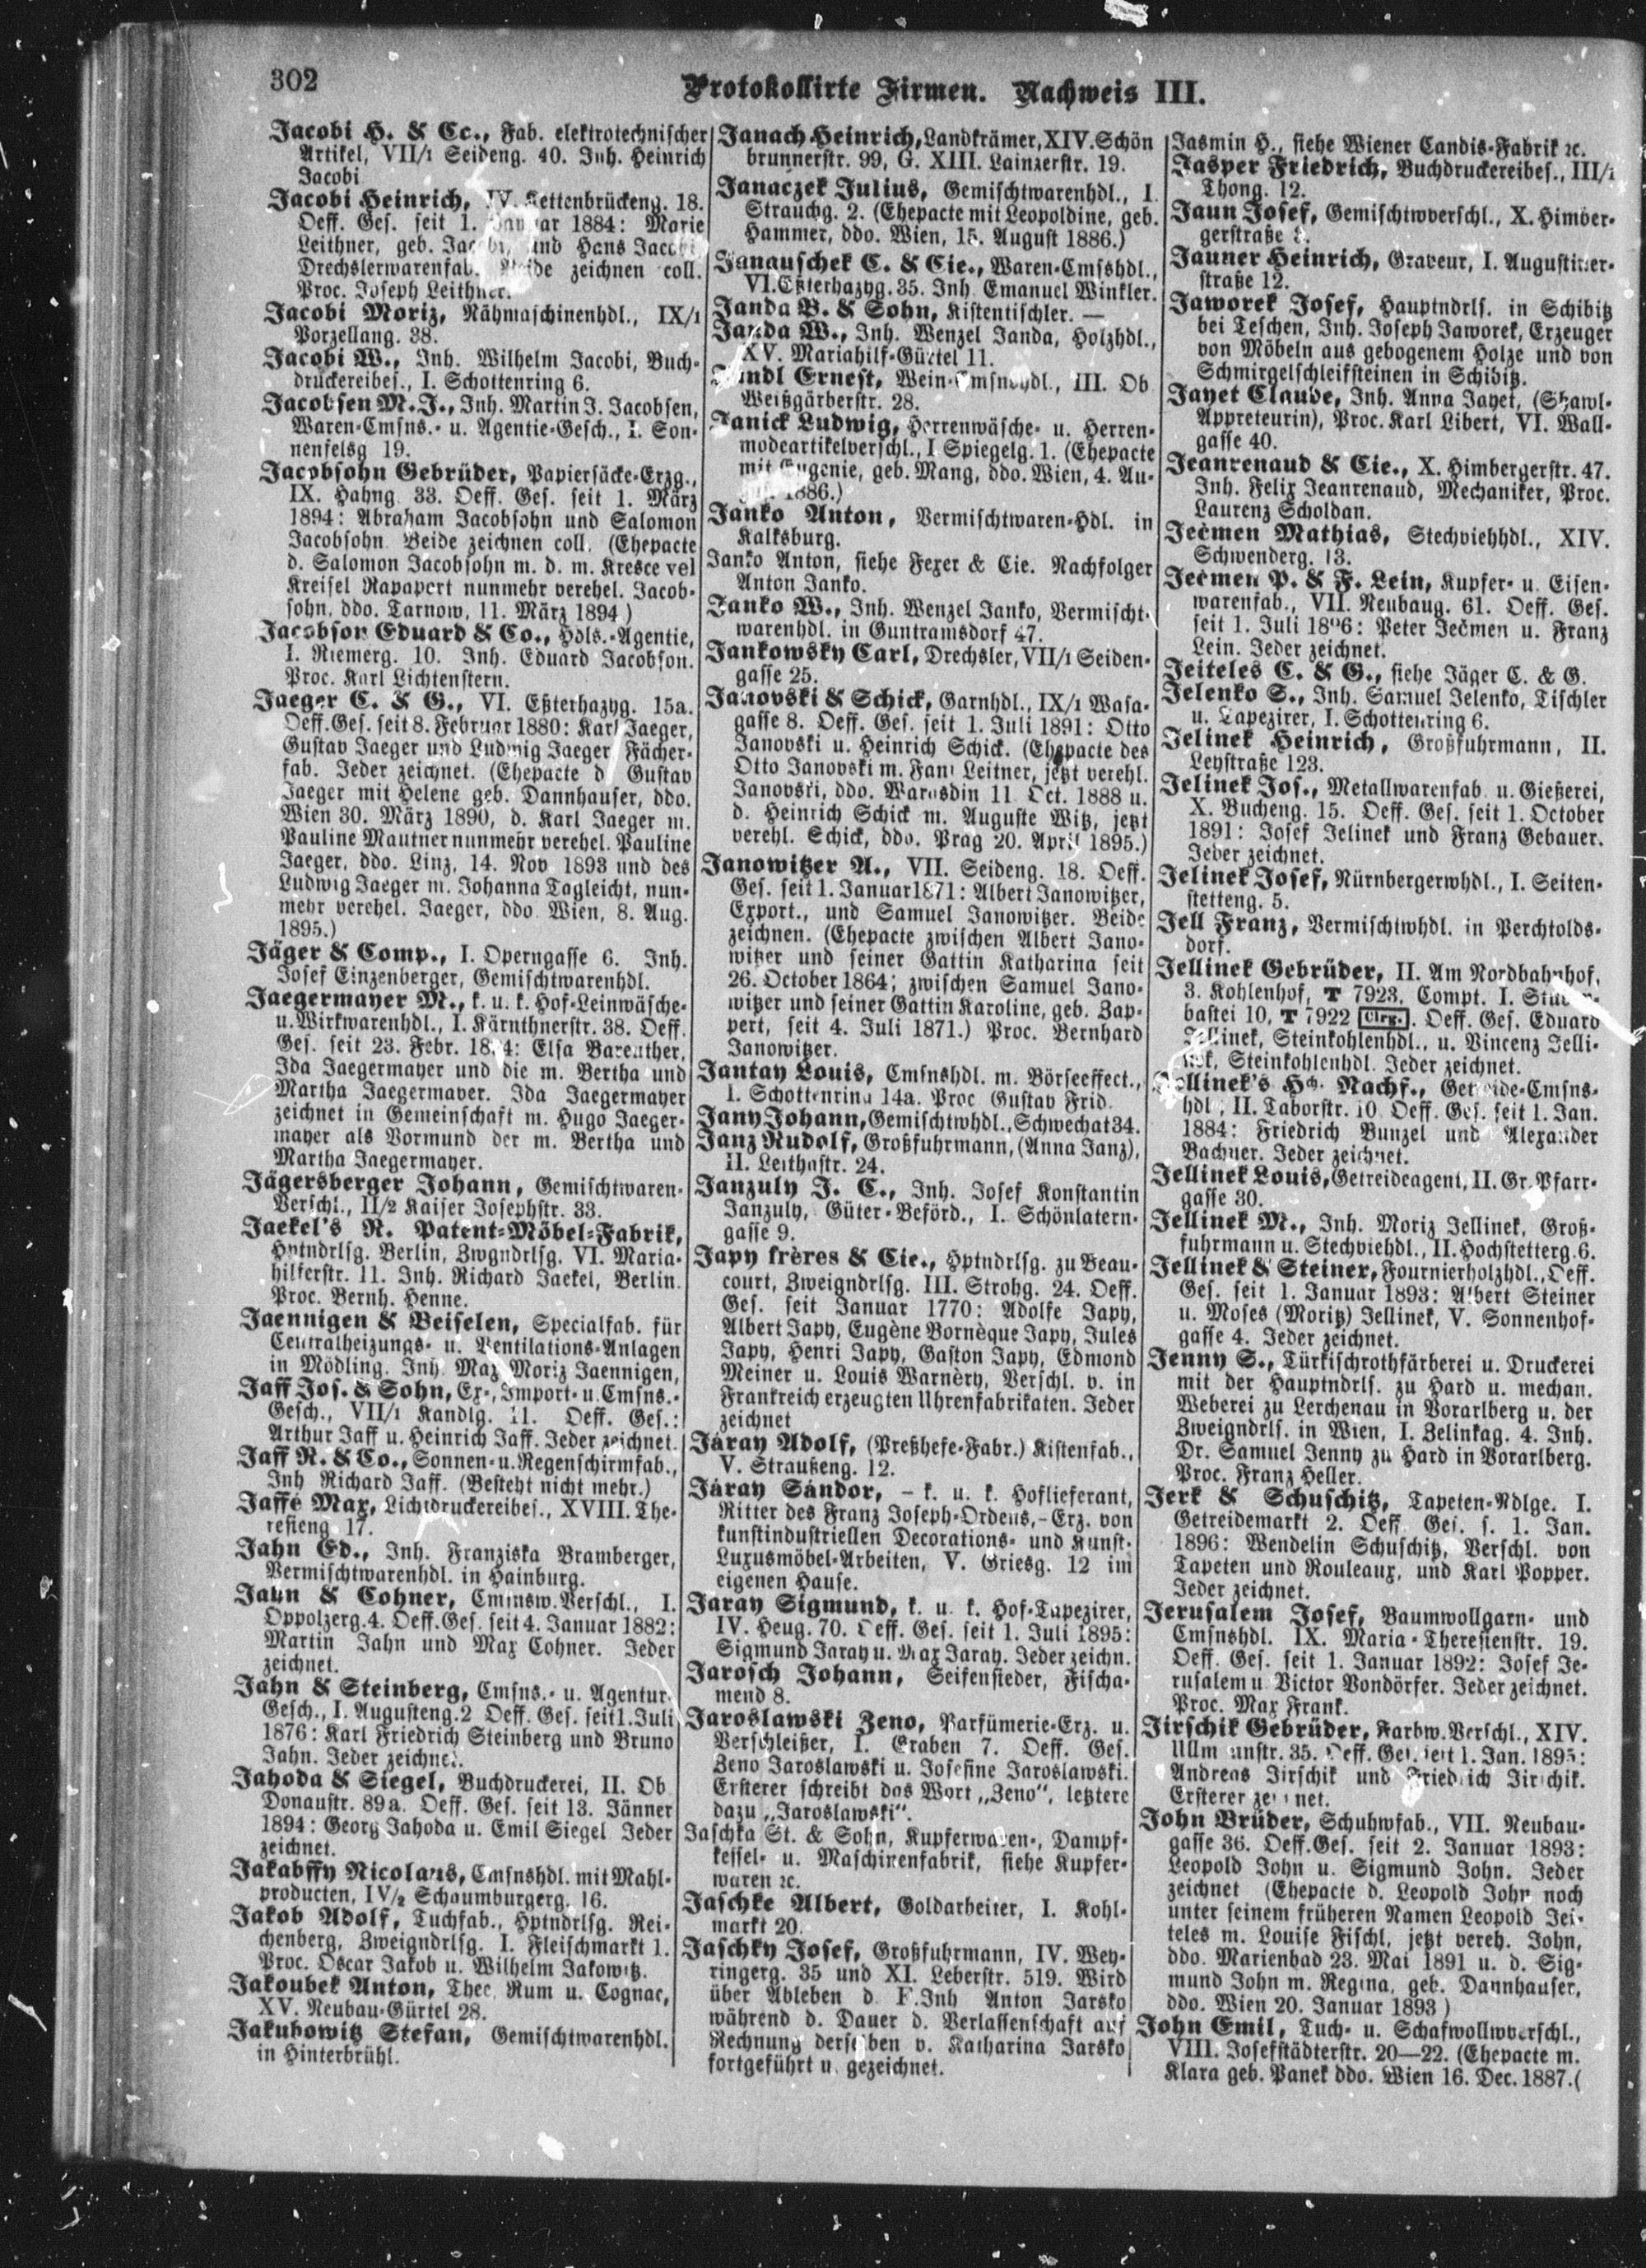 302
Protokollirte Firmen. Nachweis III.
Jacobi H. & Co., Fab. elektrotechnischer
Artikel, VII/1 Seideng. 40. Inh. Heinrich
Jacobi
Jacobi Heinrich, IV. Kettenbrückeng. 18.
Oeff. Ges. seit 1. Januar 1884: Marie
Leithner, geb. Jacobi, und Hans Jacobi
Drechslerwarenfab. Beide zeichnen coll.
Proc. Joseph Leithner.
Jacobi Moriz, Nähmaschinenhdl., IX/1
Porzellang. 38.
Jacobi W., Inh. Wilhelm Jacobi, Buch-
druckereibes., I. Schottenring 6.
Jacobsen M. J., Inh. Martin J. Jacobsen,
Waren-Cmsns.- u. Agentie-Gesch., I. Son-
nenfelsg 19.
Jacobsohn Gebrüder, Papiersäcke-Erzg.,
IX. Hahng 33. Oeff. Ges. seit 1. März
1894: Abraham Jacobsohn und Salomon
Jacobsohn Beide zeichnen coll. (Ehepacte
d. Salomon Jacobsohn m. d. m. Kresce vel
Kreisel Rapaport nunmehr verehel. Jacob-
sohn, ddo. Tarnow, 11. März 1894)
Jacobson Eduard & Co., Hdls.-Agentie,
I. Riemerg. 10. Inh. Eduard Jacobson.
Proc. Karl Lichtenstern.
Jaeger C. & G., VI. Eßterhazyg. 15a.
Oeff. Ges. seit 8. Februar 1880: Karl Jaeger,
Gustav Jaeger und Ludwig Jaeger Fächer-
fab. Jeder zeichnet. (Ehepacte d Gustav
Jaeger mit Helene geb. Dannhauser, ddo.
Wien 30. März 1890, d. Karl Jaeger m.
Pauline Mautner nunmehr verehel. Pauline
Jaeger, ddo. Linz, 14. Nov 1893 und des
Ludwig Jaeger m. Johanna Tagleicht, nun-
mehr verehel. Jaeger, ddo Wien, 8. Aug.
1895.)
Jäger & Comp., I. Operngasse 6. Inh.
Josef Einzenberger, Gemischtwarenhdl.
Jaegermayer M., k. u. k. Hof-Leinwäsche-
u. Wirkwarenhdl., I. Kärnthnerstr. 38. Oeff.
Ges. seit 23. Febr. Elsa Bareuther,
Ida Jaegermayer und die m. Bertha und
Martha Jaegermayer. Ida Jaegermayer
zeichnet in Gemeinschaft m. Hugo Jaeger-
mayer als Vormund der m. Bertha und
Martha Jaegermayer.
Jägersberger Johann, Gemischtwaren-
Verschl., II/2 Kaiser Josephstr. 33.
Jaekel's R. Patent-Möbel-Fabrik,
Hptndrlsg. Berlin, Zwgndrlsg. VI. Maria-
hilferstr. 11. Inh. Richard Jaekel, Berlin.
Proc. Bernh. Henne.
Jaennigen & Beiselen, Specialfab. für
Centralheizungs- u. Ventilations-Anlagen
in Mödling. Inh Max Moriz Jaennigen,
Jaff Jos. & Sohn, Ex-, Import- u. Cmsns.-
Gesch., VII/1 Kandlg. 11. Oeff. Ges.:
Arthur Jaff u. Heinrich Jaff. Jeder zeichnet.
Jaff R. & Co., Sonnen- u. Regenschirmfab.,
Inh Richard Jaff. (Besteht nicht mehr.)
Jaffé Max, Lichtdruckereibes., XVIII. The-
resieng 17.
Jahn Ed., Inh. Franziska Bramberger,
Vermischtwarenhdl. in Hainburg.
Jahn & Cohner, Cmmsw. Verschl., I.
Oppolzerg. 4. Oeff. Ges. seit 4. Januar 1882:
Martin Jahn und Max Cohner. Jeder
zeichnet.
Jahn & Steinberg, Cmsns.- u. Agentur-
Gesch., I. Augusteng. 2 Oeff. Ges. seit 1. Juli
1876: Karl Friedrich Steinberg und Bruno
Jahn. Jeder zeichnet.
Jahoda & Siegel, Buchdruckerei, II. Ob
Donaustr. 89a. Oeff. Ges. seit 13. Jänner
1894: Georg Jahoda u. Emil Siegel Jeder
zeichnet.
Jakabffy Nicolaus, Cmsnshdl. mit Mahl-
producten, IV/2 Schaumburgerg. 16.
Jakob Adolf, Tuchfab., Hptndrlsg. Rei-
chenberg, Zweigndrlsg. I. Fleischmarkt 1.
Proc. Oscar Jakob u. Wilhelm Jakowitz.
Jakoubek Anton, Thee, Rum u. Cognac,
XV. Neubau-Gürtel 28.
Jakubowitz Stefan, Gemischtwarenhdl.
in Hinterbrühl.
Janach Heinrich, Landkrämer, XIV. Schön
brunnerstr. 99, G. XIII. Lainzerstr. 19.
Janaczek Julius, Gemischtwarenhdl., I.
Strauchg. 2. (Ehepacte mit Leopoldine, geb.
Hammer, ddo. Wien, 15. August 1886.)
Janauschek C. & Cie., Waren-Cmsshdl.,
VI. Eßterhazyg. 35. Inh Emanuel Winkler.
Janda B. & Sohn, Kistentischler. —
Janda W., Inh. Wenzel Janda, Holzhdl.,
XV. Mariahilf-Gürtel 11.
Jandl Ernest, Wein-Cmsnshdl., III. Ob
Weißgärberstr. 28.
Janick Ludwig, Herrenwäsche- u. Herren-
modeartikelverschl., I Spiegelg. 1. (Ehepacte
mit Eugenie, geb. Mang, ddo. Wien, 4. Au-
gust 1886.)
Janko Anton, Vermischtwaren-Hdl. in
Kalksburg.
Janko Anton, siehe Fexer & Cie. Nachfolger
Anton Janko.
Janko W., Inh. Wenzel Janko, Vermischt-
warenhdl. in Guntramsdorf 47.
Jankowsky Carl, Drechsler, VII/1 Seiden-
gasse 25.
Janovski & Schick, Garnhdl., IX/1 Wasa-
gasse 8. Oeff. Ges. seit 1. Juli 1891: Otto
Janovski u. Heinrich Schick. (Ehepacte des
Otto Janovski m. Fani Leitner, jetzt verehl.
Janovski, ddo. Warasdin 11 Oct. 1888 u.
d. Heinrich Schick m. Auguste Witz, jetzt
verehl. Schick, ddo. Prag 20. April 1895.)
Janowitzer A., VII. Seideng. 18. Oeff.
Ges. seit 1. Januar 1871: Albert Janowitzer,
Export., und Samuel Janowitzer. Beide
zeichnen. (Ehepacte zwischen Albert Jano-
witzer und seiner Gattin Katharina seit
26. October 1864; zwischen Samuel Jano-
witzer und seiner Gattin Karoline, geb. Zap-
pert, seit 4. Juli 1871.) Proc. Bernhard
Janowitzer.
Jantay Louis, Cmsnshdl. m. Börseeffect.,
I. Schottenring 14a. Proc Gustav Frid.
Jany Johann, Gemischtwhdl., Schwechat 34.
Janz Rudolf, Großfuhrmann, (Anna Janz),
II. Leithastr. 24.
Janzuly J. C., Inh. Josef Konstantin
Janzuly, Güter-Beförd., I. Schönlatern-
gasse 9.
Japy frères & Cie., Hptndrlsg. zu Beau-
court, Zweigndrlsg. III. Strohg. 24. Oeff.
Ges. seit Januar 1770: Adolfe Japy,
Albert Japy, Eugène Bornèque Japy, Jules
Japy, Henri Japy, Gaston Japy, Edmond
Meiner u. Louis Warnèry, Verschl. v. in
Frankreich erzeugten Uhrenfabrikaten. Jeder
zeichnet
Járay Adolf, (Preßhefe-Fabr.) Kistenfab.,
V. Straußeng. 12.
Járay Sándor, – k. u. k. Hoflieferant,
Ritter des Franz Joseph-Ordens, – Erz. von
kunstindustriellen Decorations- und Kunst-
Luxusmöbel-Arbeiten, V. Griesg. 12 im
eigenen Hause.
Jaray Sigmund, k. u. k. Hof-Tapezirer,
IV. Heug. 70. Oeff. Ges. seit 1. Juli 1895:
Sigmund Jaray u. Max Jaray. Jeder zeichn.
Jarosch Johann, Seifensieder, Fischa-
mend 8.
Jaroslawski Zeno, Parfümerie-Erz. u.
Verschleißer, I. Graben 7. Oeff. Ges.
Zeno Jaroslawski u. Josefine Jaroslawski.
Ersterer schreibt das Wort „Zeno“, letztere
dazu „Jaroslawski“.
Jaschka St. & Sohn, Kupferwaren-, Dampf-
kessel- u. Maschinenfabrik, siehe Kupfer-
waren ꝛc.
Jaschke Albert, Goldarbeiter, I. Kohl-
markt 20.
Jaschky Josef, Großfuhrmann, IV. Wey-
ringerg. 35 und XI. Leberstr. 519. Wird
über Ableben d F. Inh Anton Jarsko
während d. Dauer d. Verlassenschaft auf
Rechnung derselben v. Katharina Jarsko
fortgeführt u. gezeichnet.
Jasmin H., siehe Wiener Candis-Fabrik ꝛc.
Jasper Friedrich, Buchdruckereibes., III/1
Thong. 12.
Jaun Josef, Gemischtwverschl., X. Himber-
gerstraße
Jauner Heinrich, Graveur, I. Augustiner-
straße 12.
Jaworek Josef, Hauptndrls. in Schibitz
bei Teschen, Inh. Joseph Jaworek, Erzeuger
von Möbeln aus gebogenem Holze und von
Schmirgelschleifsteinen in Schibitz.
Jayet Claude, Inh. Anna Jayet, (Shawl-
Appreteurin), Proc. Karl Libert, VI. Wall-
gasse 40.
Jeanrenaud & Cie., X. Himbergerstr. 47.
Inh. Felix Jeanrenaud, Mechaniker, Proc.
Laurenz Scholdan.
Ječmen Mathias, Stechviehhdl., XIV.
Schwenderg. 13.
Ječmen P. & F. Lein, Kupfer- u. Eisen-
warenfab., VII. Neubaug. 61. Oeff. Ges.
seit 1. Juli Peter Ječmen u. Franz
Lein. Jeder zeichnet.
Jeiteles C. & G., siehe Jäger C. & G.
Jelenko S., Inh. Samuel Jelenko, Tischler
u. Tapezirer, I. Schottenring 6.
Jelinek Heinrich, Großfuhrmann, II.
Leystraße 123.
Jelinek Jos., Metallwarenfab u. Gießerei,
X. Bucheng. 15. Oeff. Ges. seit 1. October
1891: Josef Jelinek und Franz Gebauer.
Jeder zeichnet.
Jelinek Josef, Nürnbergerwhdl., I. Seiten-
stetteng. 5.
Jell Franz, Vermischtwhdl. in Perchtolds-
dorf.
Jellinek Gebrüder, II. Am Nordbahnhof,
3. Kohlenhof, T 7923, Compt. I. Stuben-
bastei 10, T 7922 Clrg. Oeff. Ges. Eduard
Jellinek, Steinkohlenhdl., u. Vincenz Jelli-
nek, Steinkohlenhdl. Jeder zeichnet.
Jellinek's Hch. Nachf., Getreide-Cmsns-
hdl., II. Taborstr. 10 Oeff. Ges. seit 1. Jan.
1884: Friedrich Bunzel und Alexander
Bachner. Jeder zeichnet.
Jellinek Louis, Getreideagent, II. Gr. Pfarr-
gasse 30.
Jellinek M., Inh. Moriz Jellinek, Groß-
fuhrmann u. Stechviehdl., II. Hochstetterg. 6.
Jellinek & Steiner, Fournierholzhdl., Oeff.
Ges. seit 1. Januar 1893: Albert Steiner
u. Moses (Moritz) Jellinek, V. Sonnenhof-
gasse 4. Jeder zeichnet.
Jenny S., Türkischrothfärberei u. Druckerei
mit der Hauptndrls. zu Hard u. mechan.
Weberei zu Lerchenau in Vorarlberg u. der
Zweigndrls. in Wien, I. Zelinkag. 4. Inh.
Dr. Samuel Jenny zu Hard in Vorarlberg.
Proc. Franz Heller.
Jerk & Schuschitz, Tapeten-Ndlge. I.
Getreidemarkt 2. Oeff. Ges. s. 1. Jan.
1896: Wendelin Schuschitz, Verschl. von
Tapeten und Rouleaux, und Karl Popper.
Jeder zeichnet.
Jerusalem Josef, Baumwollgarn- und
Cmsnshdl. IX. Maria-Theresienstr. 19.
Oeff. Ges. seit 1. Januar 1892: Josef Je-
rusalem u. Victor Vondörfer. Jeder zeichnet.
Proc. Max Frank.
Jirschik Gebrüder, Farbw. Verschl., XIV.
Ullmannstr. 35. Oeff. Ges. seit 1. Jan. 1895:
Andreas Jirschik und Friedrich Jirschik.
Ersterer zeichnet.
John Brüder, Schuhwfab., VII. Neubau-
gasse 36. Oeff. Ges. seit 2. Januar 1893:
Leopold John u. Sigmund John. Jeder
zeichnet (Ehepacte d. Leopold John noch
unter seinem früheren Namen Leopold Jei-
teles m. Louise Fischl, jetzt vereh. John,
ddo. Marienbad 23. Mai 1891 u. d. Sig-
mund John m. Regina, geb. Dannhauser,
ddo. Wien 20. Januar 1893)
John Emil, Tuch- u. Schafwollwverschl.,
VIII. Josefstädterstr. 20—22. (Ehepacte m.
Klara geb. Panek ddo. Wien 16. Dec. 1887.(